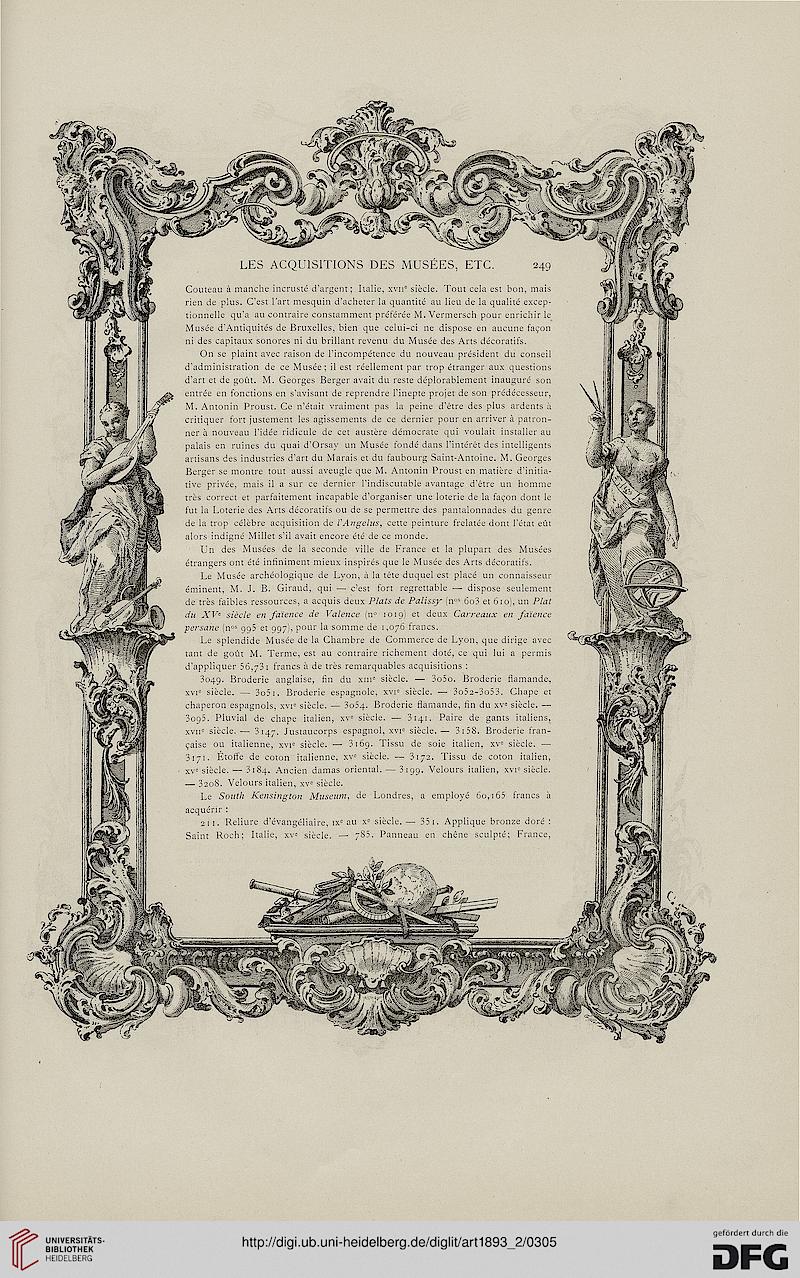 LES ACQUISITIONS DES MUSÉES, ETC. 249
Couteau à manche incrusté d'argent; Italie, XVIIe siècle. Tout cela est bon, mais
rien de plus. C'est l'art mesquin d'acheter la quantité au lieu de la qualité excep-
tionnelle qu'a au contraire constamment préférée M. Vermersch pour enrichir le
Musée d'Antiquités de Bruxelles, bien que celui-ci ne dispose en aucune façon
ni des capitaux sonores ni du brillant revenu du Musée des Arts décoratifs.
On se plaint avec raison de l'incompétence du nouveau président du conseil
d'administration de ce Musée; il est réellement par trop étranger aux questions
d'art et de goût. M. Georges Berger avait du reste déplorablement inauguré son
entrée en fonctions en s'avisant de reprendre l'inepte projet de son prédécesseur,
M. Antonin Proust. Ce n'était vraiment pas la peine d'être des plus ardents à
critiquer fort justement les agissements de ce dernier pour en arriver à patron-
ner à nouveau l'idée ridicule de cet austère démocrate qui voulait installer au
palais en ruines du quai d'Orsay un Musée fondé dans l'intérêt des intelligents
artisans des industries d'art du Marais et du faubourg Saint-Antoine. M. Georges
Berger se montre tout aussi aveugle que M. Antonin Proust en matière d'initia-
tive privée, mais il a sur ce dernier l'indiscutable avantage d'être un homme
très correct et parfaitement incapable d'organiser une loterie de la façon dont le
fut la Loterie des Arts décoratifs ou de se permettre des pantalonnades du genre
de la trop célèbre acquisition de l'Angelus, cette peinture frelatée dont l'état eût
alors indigné Millet s'il avait encore été de ce monde.
Un des Musées de la seconde ville de France et la plupart des Musées
étrangers ont été infiniment mieux inspirés que le Musée des Arts décoratifs.
Le Musée archéologique de Lyon, à la tête duquel est placé un connaisseur
éminent, M. J. B. Giraud, qui — c'est fort regrettable — dispose seulement
de très faibles ressources, a acquis deux Plats de Palissy (nos 603 et 610), un Plat
du XVe siècle en faïence de Valence (no 1019) et deux Carreaux en faïence
persane (nos 995 et 997), pour la somme de 1,076 francs.
Le splendide Musée de la Chambre de Commerce de Lyon, que dirige avec
tant de goût M. Terme, est au contraire richement doté, ce qui lui a permis
d'appliquer 56,731 francs à de très remarquables acquisitions :
3049. Broderie anglaise, fin du XIIIe siècle. — 3050. Broderie flamande,
XVIe siècle. — 3051. Broderie espagnole, XVIe siècle. — 3052-3053. Chape et
chaperon espagnols, XVIe siècle. — 3054. Broderie flamande, fin du XVe siècle. —
3095. Pluvial de chape italien, XVe siècle. — 3141. Paire de gants italiens,
XVIIe siècle. — 3147. Justaucorps espagnol, XVIe siècle. — 3158. Broderie fran-
çaise ou italienne, XVIe siècle. — 3169. Tissu de soie italien, XVe siècle. —
3171. Étoffe de coton italienne, XVe siècle. — 3172. Tissu de coton italien,
XVe siècle. — 3184. Ancien damas oriental. — 3199. Velours italien, XVIe siècle.
— 3208. Velours italien, XVe siècle.
Le South Kensington Museum, de Londres, a employé 60,165 francs à
acquérir :
211. Reliure d'évangéliaire, IXe au Xe siècle. — 351. Applique bronze doré :
Saint Roch; Italie, XVe siècle. — 785. Panneau en chêne sculpté; France,
UNIVERSITÄTS-
BIBLIOTHEK
HEIDELBERG
http://digi.ub.uni-heidelberg.de/diglit/art1893_2/0305
gefördert durch die
DFG